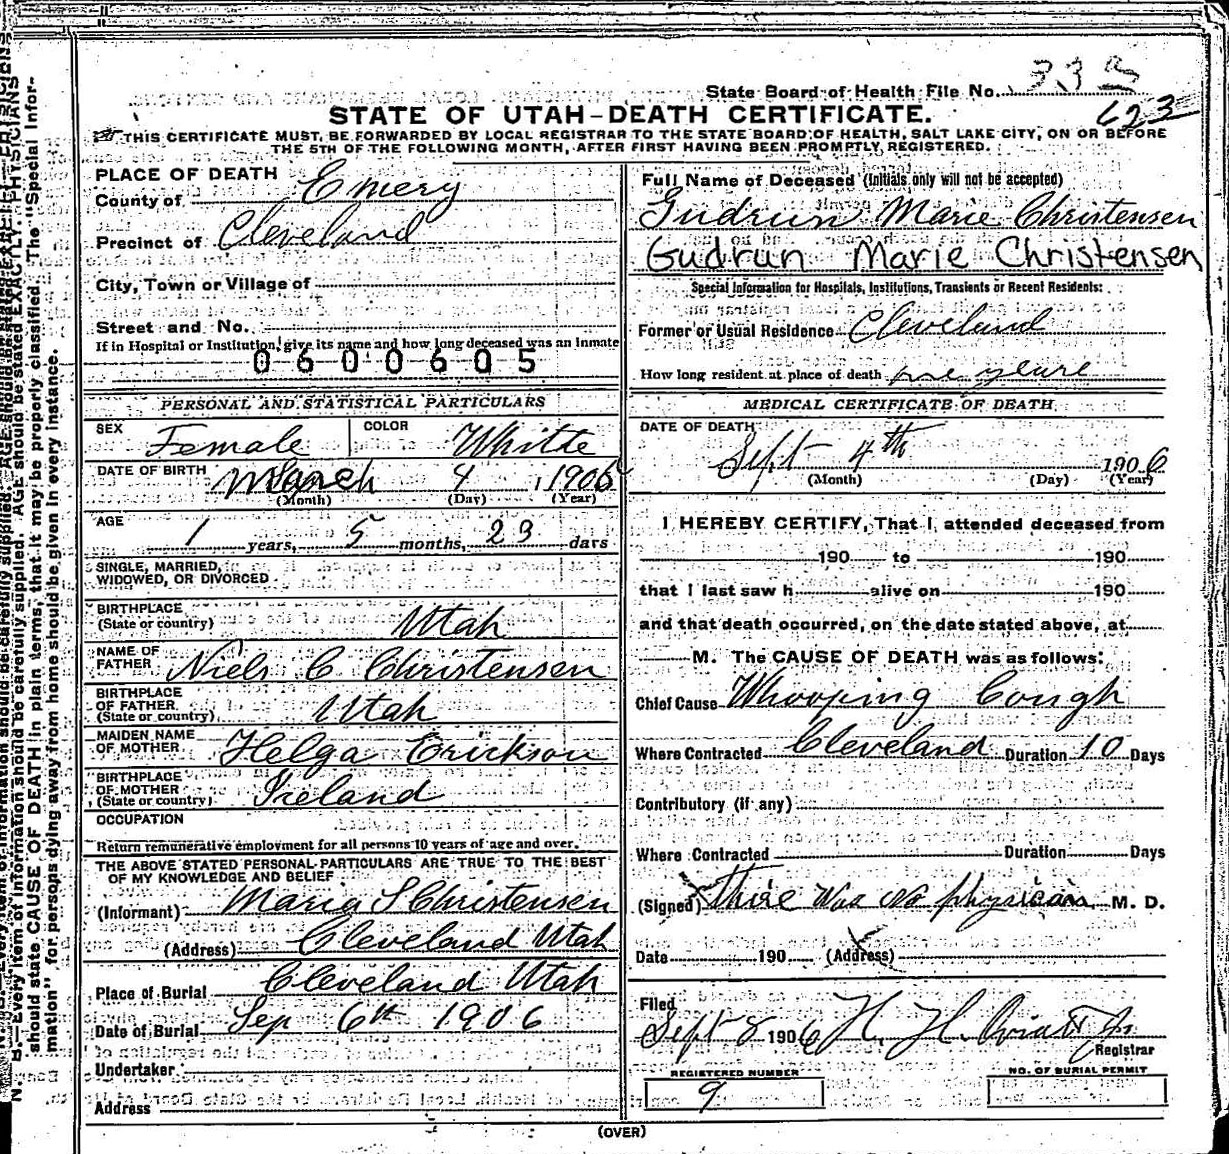 State Board of Health File No. 332
623
STATE OF UTAH–DEATH CERTIFICATE.
THIS CERTIFICATE MUST BE FORWARDED BY LOCAL REGISTRAR TO THE STATE BOARD OF HEALTH, SALT LAKE CITY, ON OR BEFORE
THE 5TH OF THE FOLLOWING MONTH, AFTER FIRST HAVING BEEN PROMPTLY REGISTERED.
PLACE OF DEATH
County of Emery
Precinct of Cleveland
City, Town or Village of
Street and No.
If in Hospital or Institution, give its name and how long deceased was an inmate
0600605
PERSONAL AND STATISTICAL PARTICULARS
SEX Female COLOR White
DATE OF BIRTH March 4, 1906
(Month) (Day) (Year)
AGE
1 years, 5 months, 23 days
SINGLE, MARRIED,
WIDOWED, OR DIVORCED
BIRTHPLACE
(State or country) Utah
NAME OF
FATHER Niels C Christensen
BIRTHPLACE
OF FATHER
(State or country) Utah
MAIDEN NAME
OF MOTHER Helga Erickson
BIRTHPLACE
OF MOTHER
(State or country) Iceland
OCCUPATION
Return remunerative employment for all persons 10 years of age and over.
THE ABOVE STATED PERSONAL PARTICULARS ARE TRUE TO THE BEST
OF MY KNOWLEDGE AND BELIEF
(Informant) Maria S Christensen
(Address) Cleveland Utah
Place of Burial Cleveland Utah
Date of Burial Sep 6th 1906
Undertaker
Address
Full Name of Deceased (Initials only will not be accepted)
Gudrun Marie Christensen
Gudrun Marie Christensen
Special Information for Hospitals, Institutions, Transients or Recent Residents:
Former or Usual Residence Cleveland
How long resident at place of death one yeare
MEDICAL CERTIFICATE OF DEATH
DATE OF DEATH
Sept 4th 1906
(Month) (Day) (Year)
I HEREBY CERTIFY, That I attended deceased from
190 to 190
that I last saw h alive on 190
and that death occurred, on the date stated above, at
M. The CAUSE OF DEATH was as follows:
Chief Cause Whooping Cough
Where Contracted Cleveland Duration 10 Days
Contributory (if any)
Where Contracted Duration Days
(Signed) thire was no physician M. D.
Date 190 (Address)
Filed
Sept 8 1906 H. H. Oviatt Jr
Registrar
REGISTERED NUMBER
9
NO. OF BURIAL PERMIT
(OVER)
N. B.—Every item of information should be carefully supplied. AGE should be stated EXACTLY. PHYSICIANS
should state CAUSE OF DEATH in plain terms, that it may be properly classified. The "Special Infor-
mation" for persons dying away from home should be given in every instance.